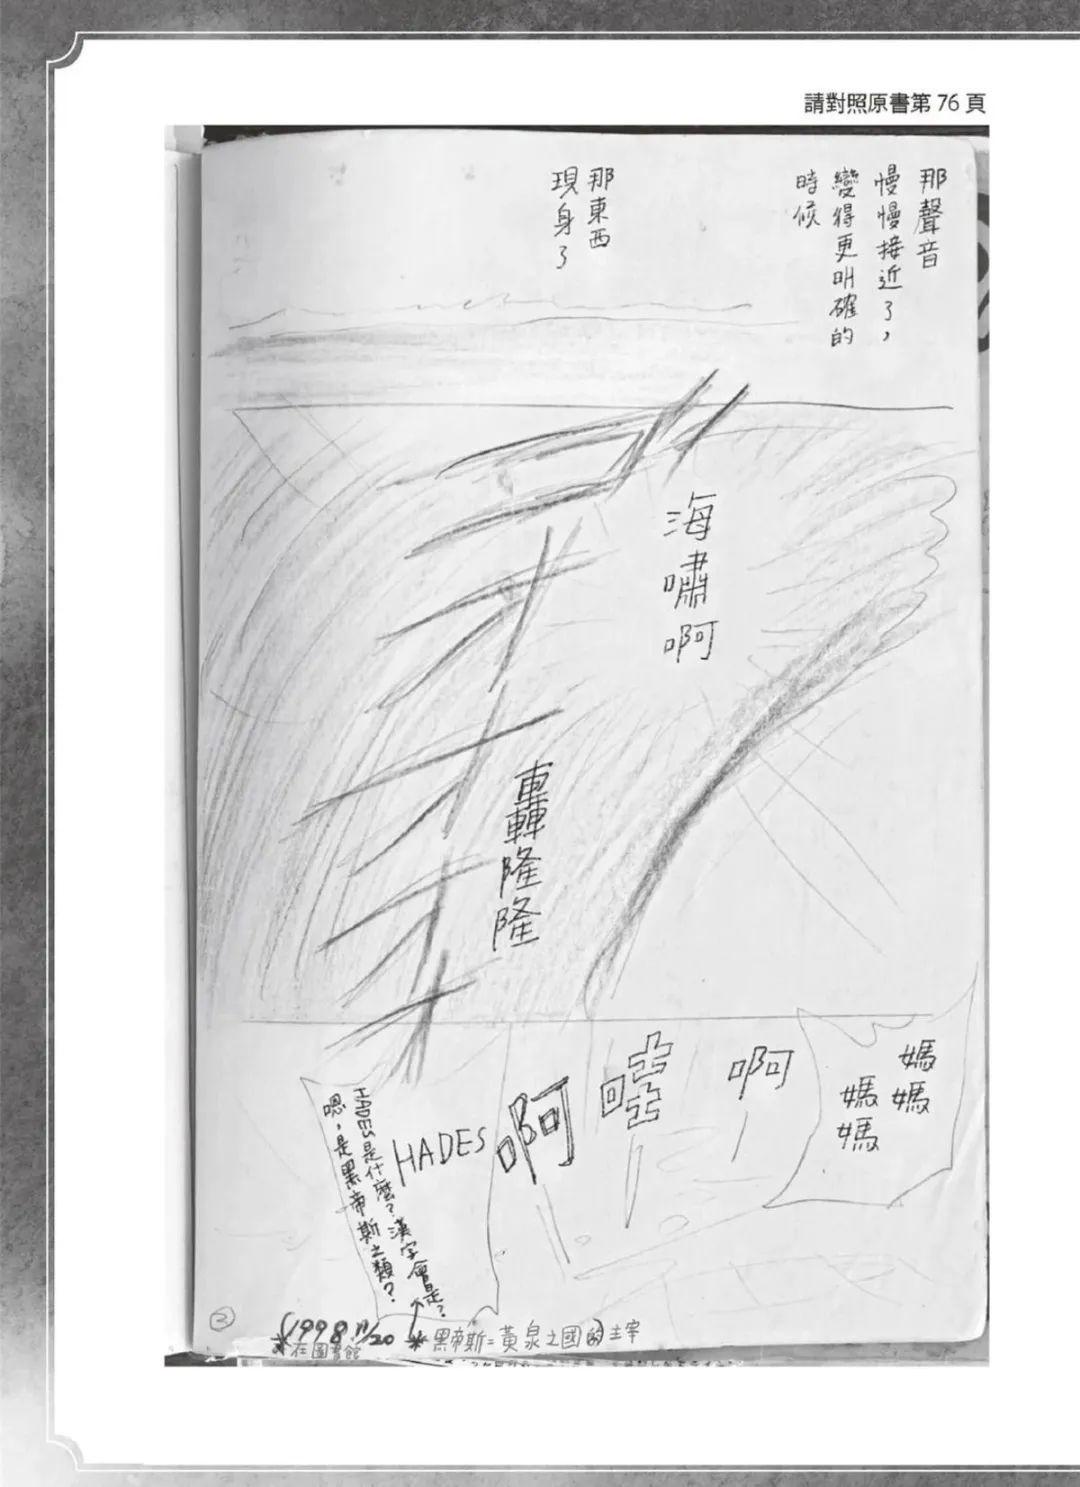 請對照原書第 76 頁
那聲音
慢慢接近了，
變得更明確的
時候
那東西
現身了
海嘯啊
轟隆隆
媽媽
媽媽
啊
哇
啊
HADES
HADES是什麼？漢字會是？
嗯，是黑帝斯之類？
③
(1998 11/20
*在圖書館
*黑帝斯=黃泉之國的主宰